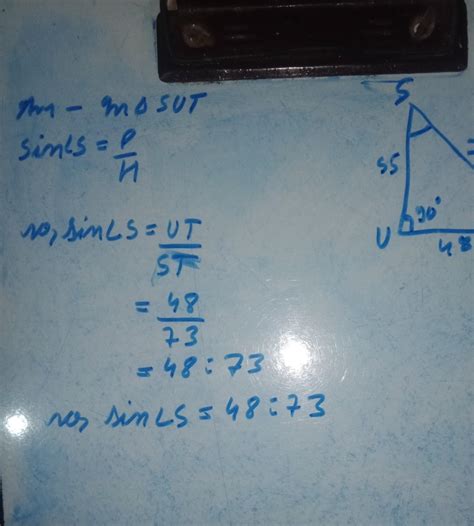 In - in △ SUT
sin∠S = P/H
so, sin∠S = UT/ST
= 48/73
= 48:73
so, sin∠S = 48:73
S
55
90°
U
48